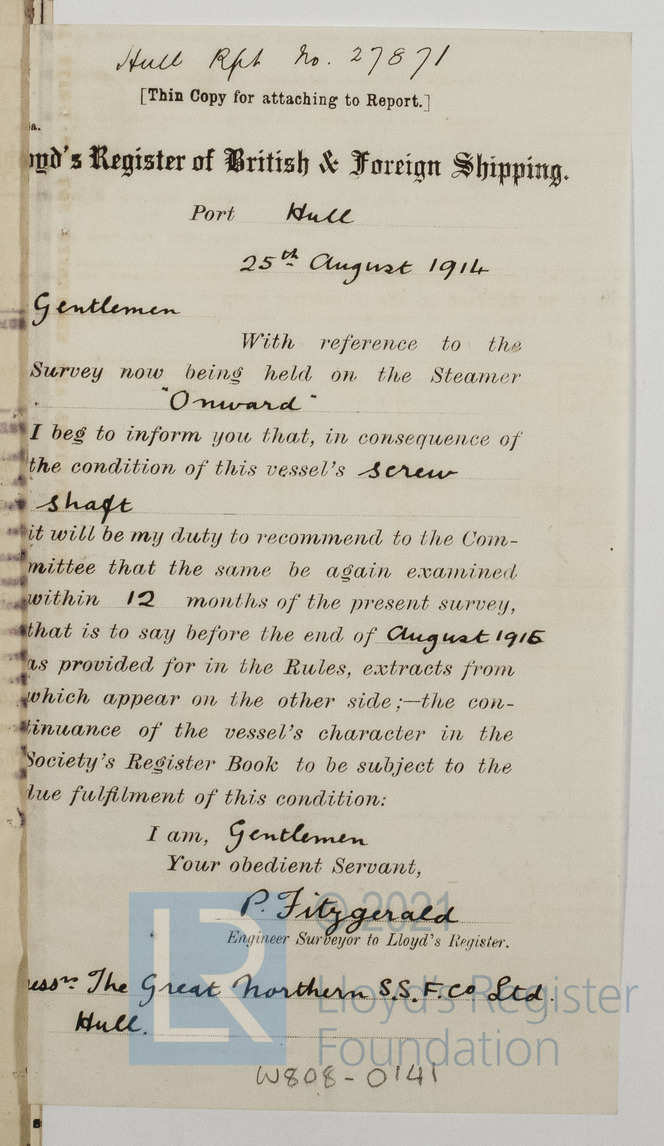 Hull Rpt No. 27871
[Thin Copy for attaching to Report.]
a.
oyd's Register of British & Foreign Shipping.
Port Hull
25th August 1914
Gentlemen
With reference to the
Survey now being held on the Steamer
"Onward"
I beg to inform you that, in consequence of
the condition of this vessel's screw
shaft
it will be my duty to recommend to the Com-
mittee that the same be again examined
within 12 months of the present survey,
that is to say before the end of August 1915
as provided for in the Rules, extracts from
which appear on the other side;—the con-
tinuance of the vessel's character in the
Society's Register Book to be subject to the
due fulfilment of this condition:
I am, Gentlemen
Your obedient Servant,
P. Fitzgerald
Engineer Surveyor to Lloyd's Register.
essrs The Great Northern S.S. F. Co Ltd.
Hull.
W808-0141
© 2021
LR
Lloyd's Register
Foundation